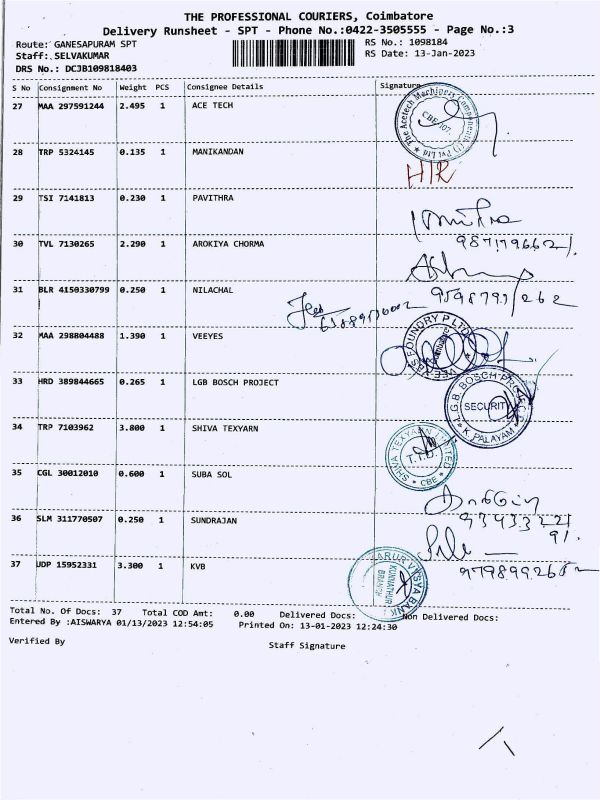 THE PROFESSIONAL COURIERS, Coimbatore
Delivery Runsheet - SPT - Phone No.:0422-3505555 - Page No.:3
Route: GANESAPURAM SPT RS No.: 1098184
Staff: SELVAKUMAR RS Date: 13-Jan-2023
DRS No.: DCJB109818403
S No Consignment No Weight PCS Consignee Details Signature
27 MAA 297591244 2.495 1 ACE TECH
The Acetech Machinery Components (I) Pvt Ltd
28 TRP 5324145 0.135 1 MANIKANDAN
H/R
29 TSI 7141813 0.230 1 PAVITHRA
30 TVL 7130265 2.290 1 AROKIYA CHORMA
31 BLR 4150330799 0.250 1 NILACHAL
32 MAA 298804488 1.390 1 VEEYES
FOUNDRY P LTD
33 HRD 389844665 0.265 1 LGB BOSCH PROJECT
L.G.B. BOSCH PROJECT
SECURITY
K. PALAYAM
34 TRP 7103962 3.800 1 SHIVA TEXYARN
SHIVA TEXYARN LIMITED
CBE
35 CGL 30012010 0.600 1 SUBA SOL
36 SLM 311770507 0.250 1 SUNDRAJAN
37 UDP 15952331 3.300 1 KVB
KARUR VYSYA BANK
KUNNATHUR
BRANCH
Total No. Of Docs: 37 Total COD Amt: 0.00 Delivered Docs: Non Delivered Docs:
Entered By :AISWARYA 01/13/2023 12:54:05 Printed On: 13-01-2023 12:24:30
Verified By Staff Signature